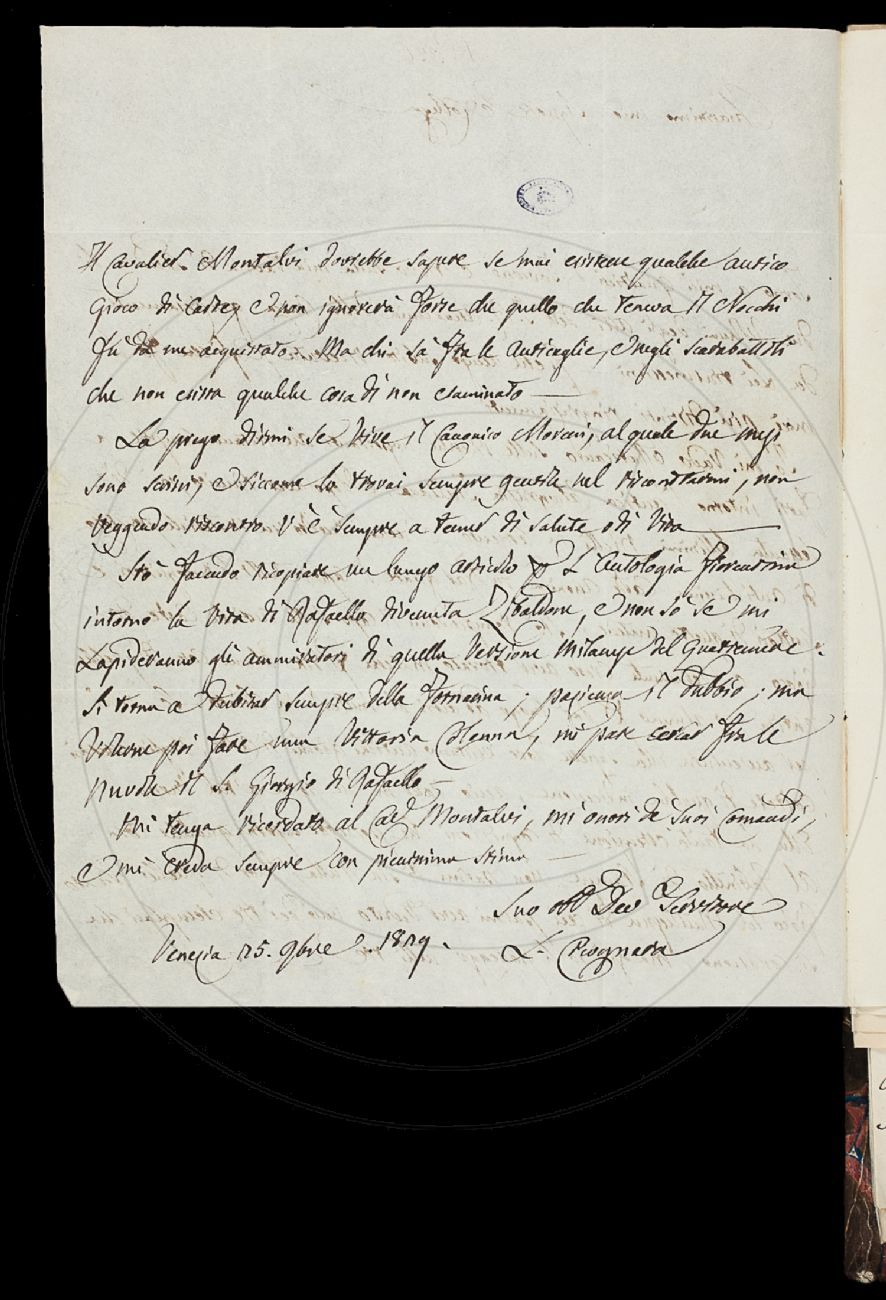 Il Cavalier Montalvi dovrebbe sapere se mai esistesse qualche antico
Gioco di Carte, e non ignorerà forse che quello che teneva il Nocchi
fù da me acquistato. Ma chi sà fra le anticaglie, e negli Scarabattoli
che non esista qualche cosa di non esaminato —
La prego dirmi se vive il Canonico Moreni, al quale due mesi
sono scrissi, e siccome lo trovai sempre gentile nel riscontrarmi, non
veggendo riscontro v'è sempre a temer di salute o di vita —
Stò facendo ricopiare un lungo articolo p L'Antologia fiorentina
intorno la Vita di Rafaello divenuta Zibaldone, e non sò se mi
Lapideranno gli ammiratori di quella Versione milanese del Quatremere.
Si torna a dubitar sempre della Fornarina; pazienza il dubbio; ma
volerne poi fare una Vittoria Colonna, mi pare cercar fra le
nuvole il S. Giorgio di Rafaello —
Mi tenga ricordato al Cav Montalvi, mi onori de suoi Comandi,
e mi creda sempre con pienissima stima —
Suo obb Dev Servitore
Venezia 25. 9bre 1829.
L. Cicognara